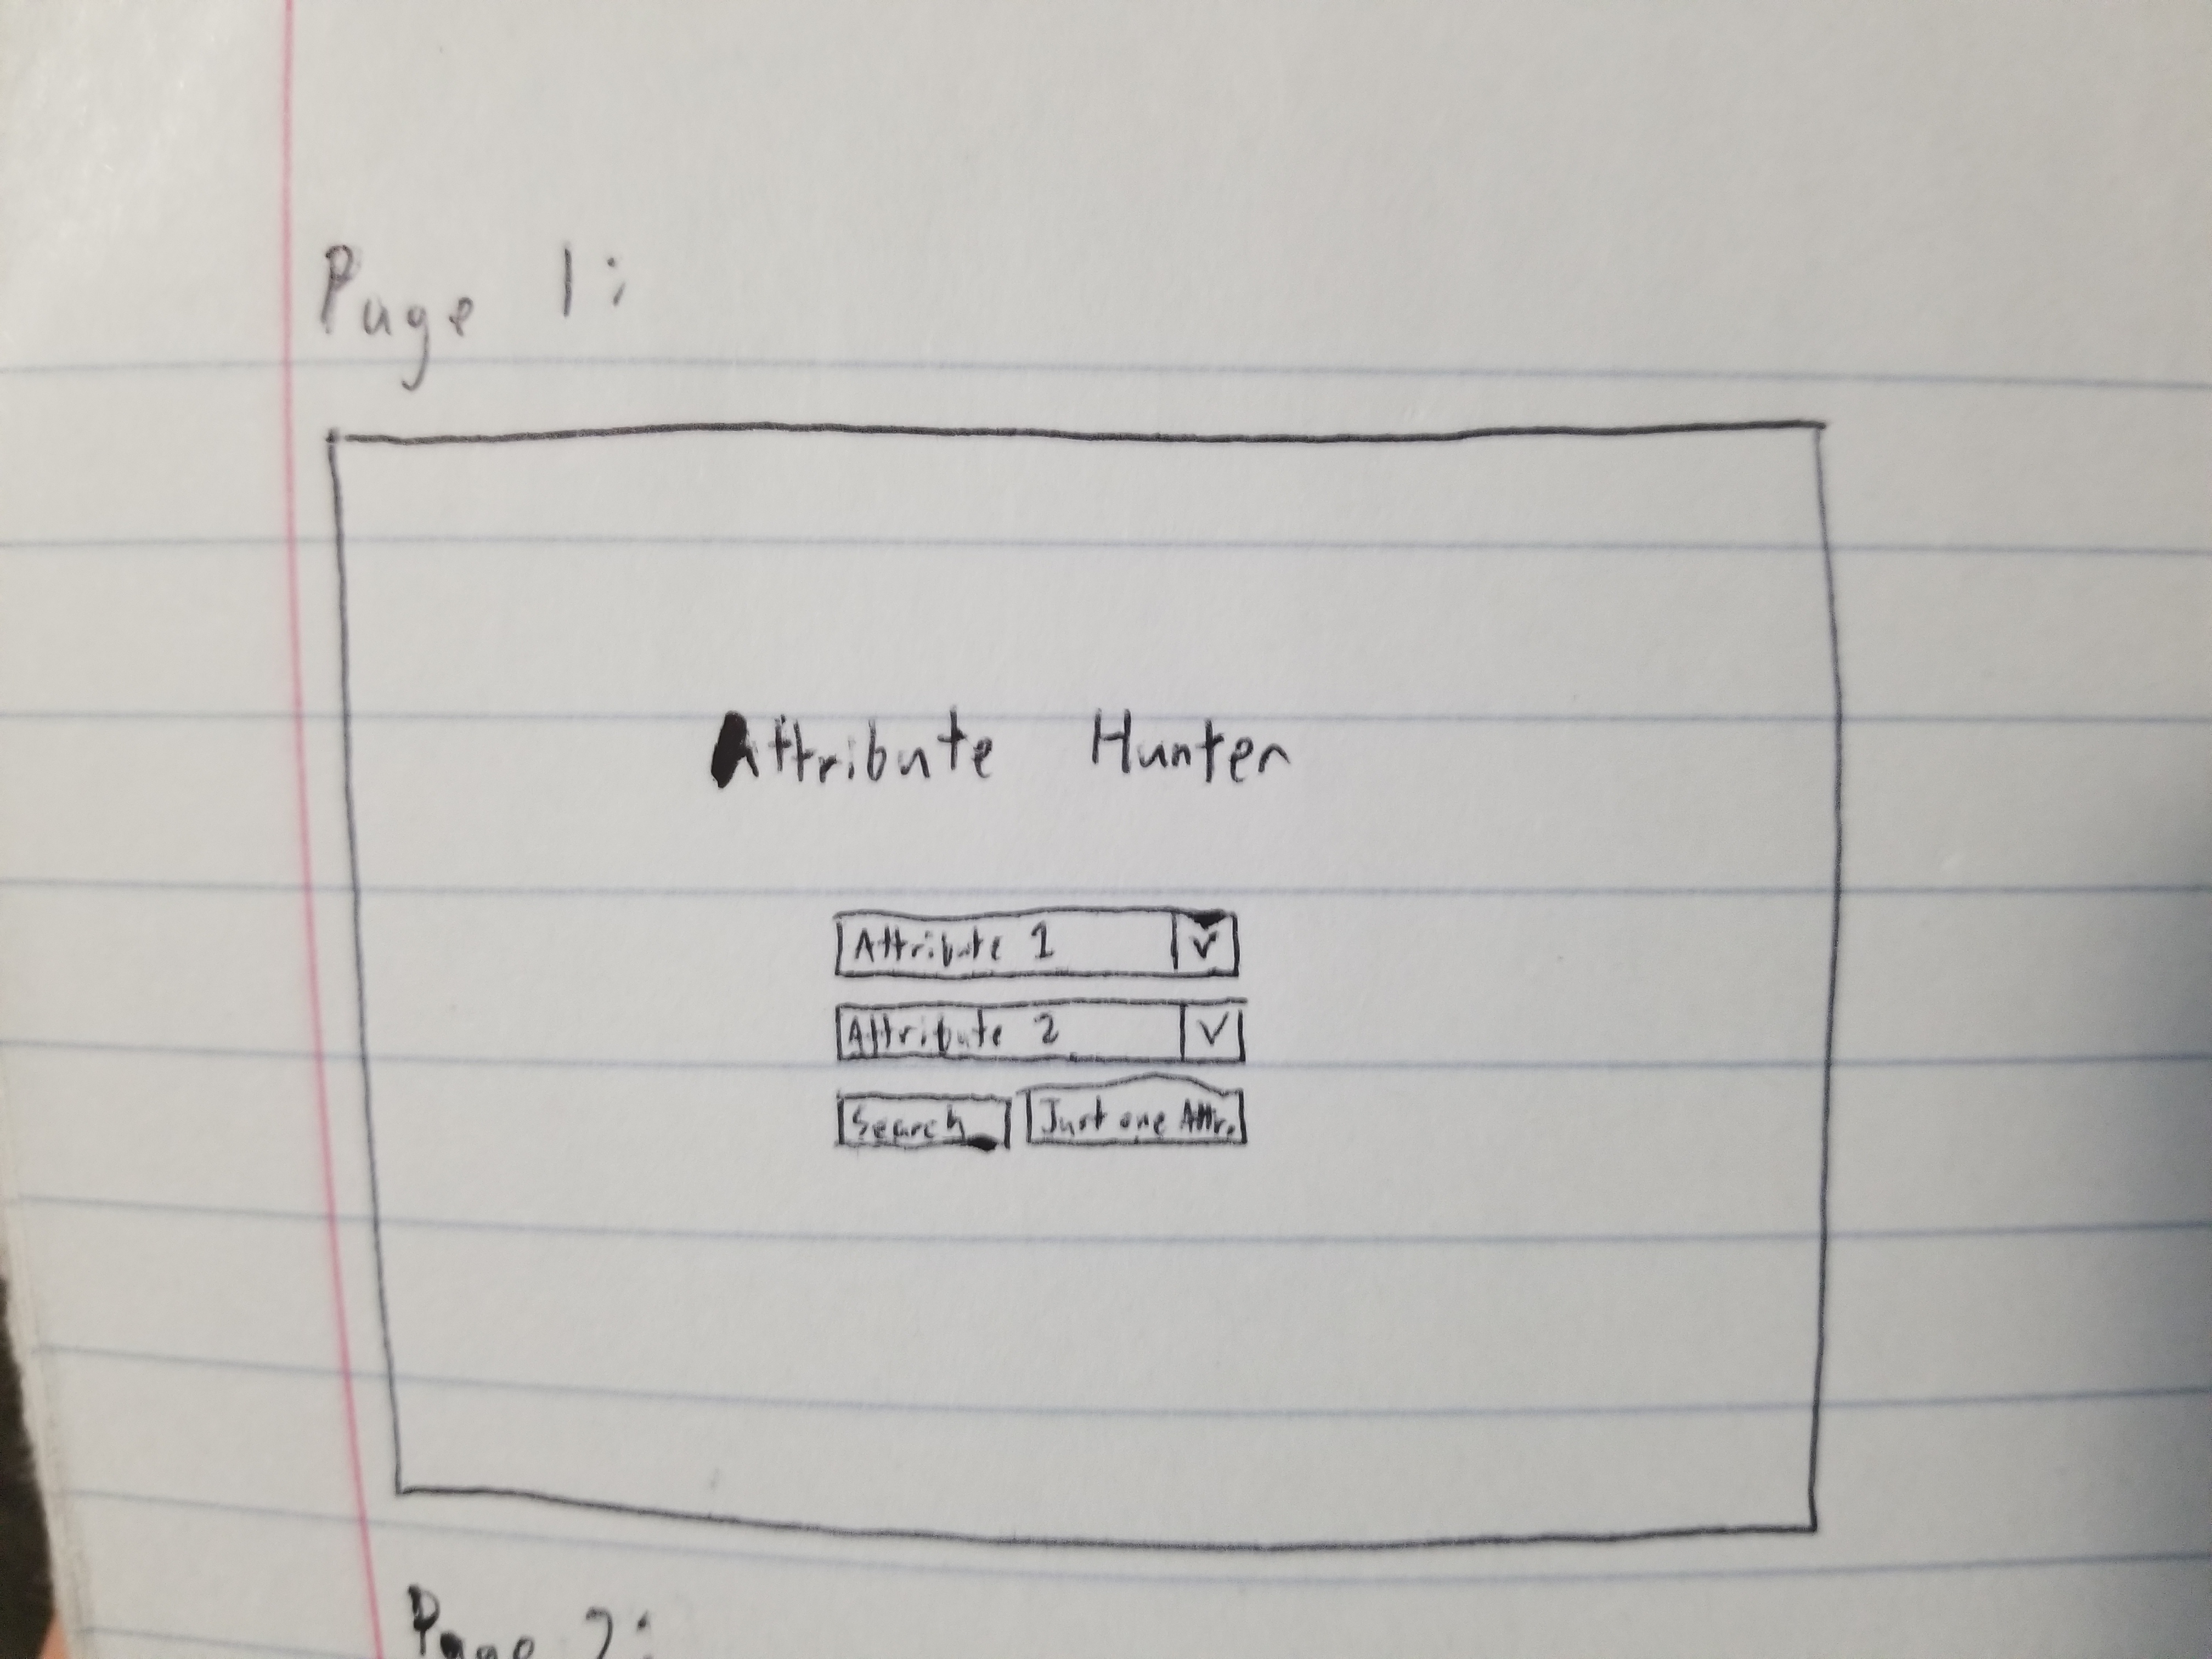 Page 1:
Attribute Hunter
Attribute 1
Attribute 2
Search Just one Attr.
Page 2: